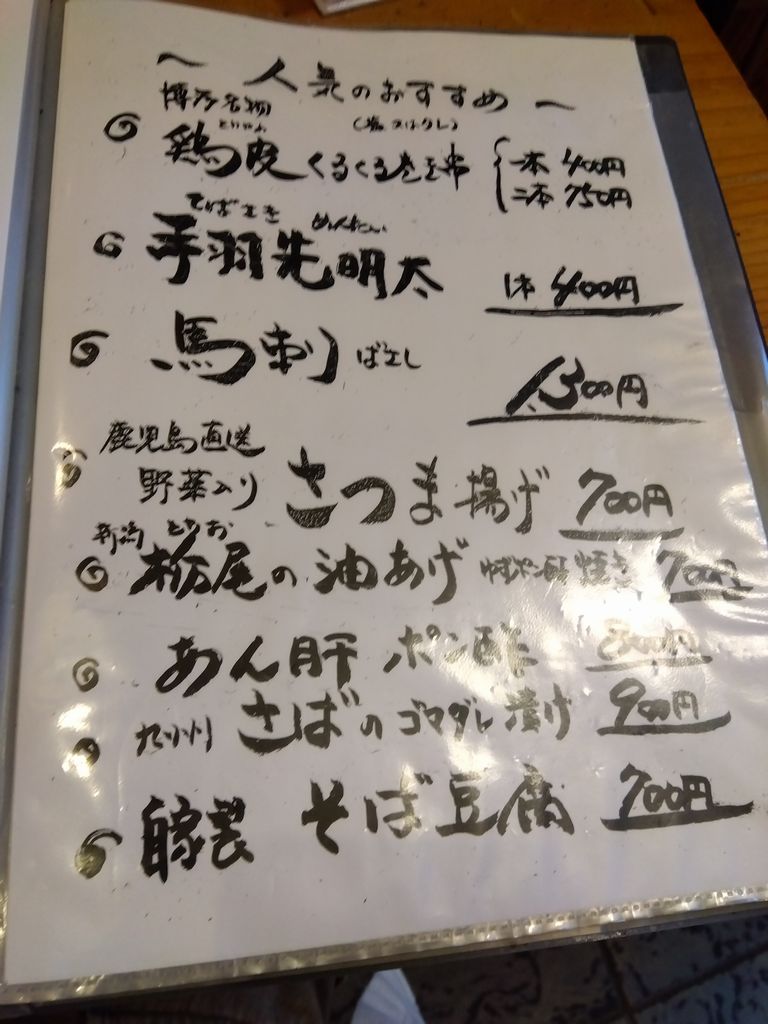 〜 人気のおすすめ 〜
博多名物 (塩又はタレ)
とりかわ
鶏皮くるくる巻き串 一本 400円
二本 750円
てばさき めんたい
手羽先明太 1本 400円
馬刺 ばさし 1,300円
鹿児島直送
野菜入り さつま揚げ 700円
新潟 とちお
栃尾の油あげ 焼き 700円
あん肝 ポン酢 800円
九州 さばのゴマダレ漬け 900円
自家製 そば豆腐 700円